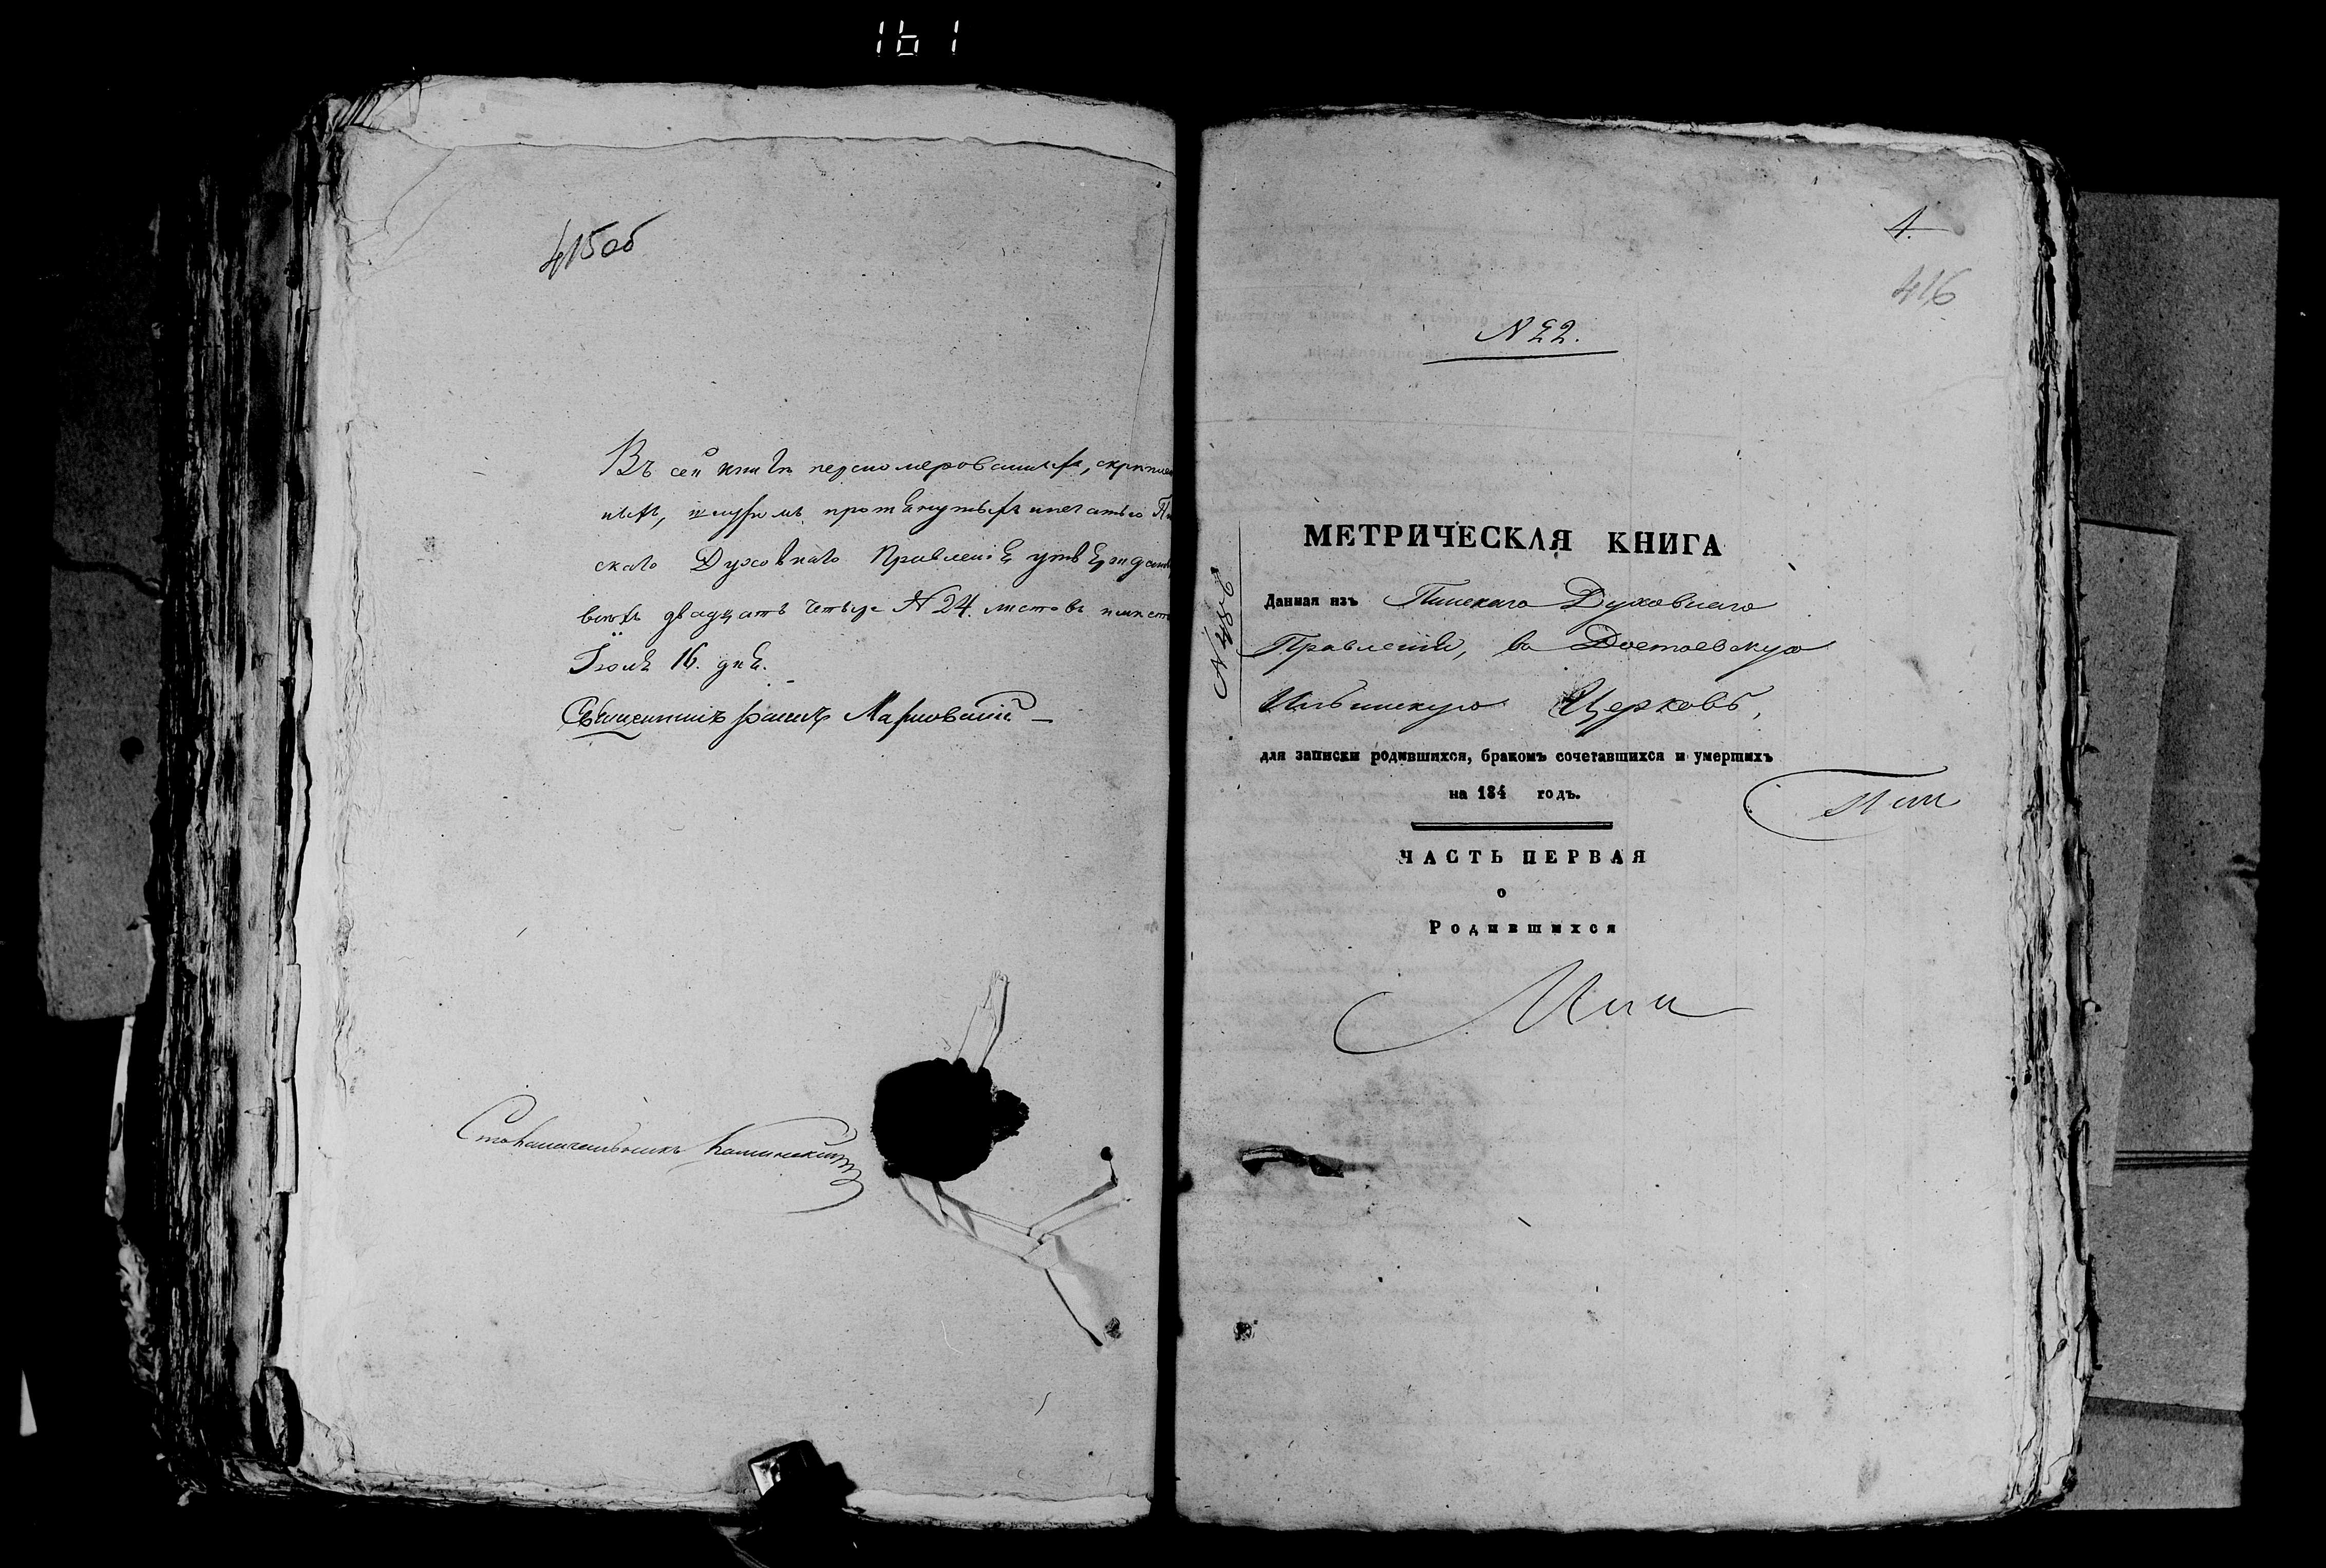 161
415 об
Въ сей книгѣ перенумерованныхъ, скрѣплен
ныхъ, шнуромъ протянутыхъ и печатью Пи
скаго Духовнаго Правленія утвержден
всѣхъ двадцать четыре N 24. листовъ
Іюля 16. дня.
Священникъ Маріовскій
Столоначальникъ Каминскій
1.
416
N 22.
МЕТРИЧЕСКАЯ КНИГА
Данная изъ Пинскаго Духовнаго
Правленія, въ Достоевскую
Ильинскую Церковь,
для записки родившихся, бракомъ сочетавшихся и умершихъ
на 184 годъ.
ЧАСТЬ ПЕРВАЯ
о
Родившихся